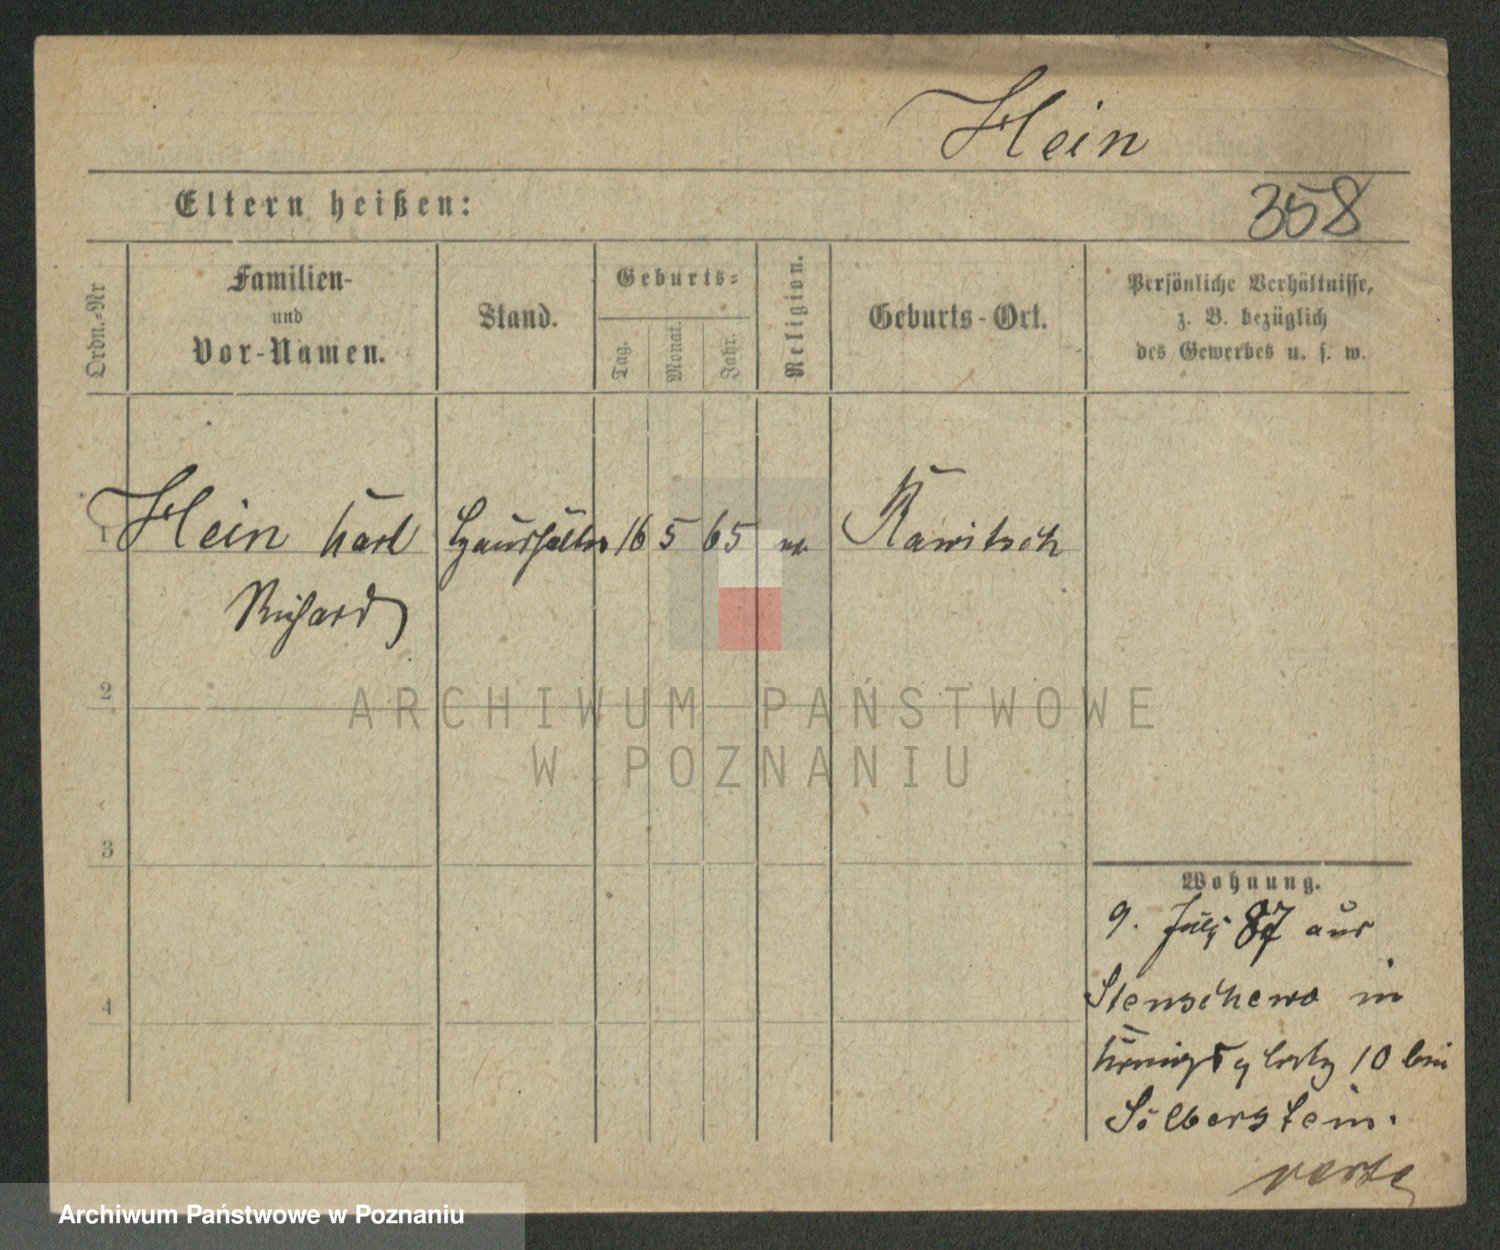 Hein
Eltern heißen:
358
Ordn.-Nr
Familien-
und
Vor-Namen.
Stand.
Geburts-
Tag.
Monat.
Jahr.
Religion.
Geburts-Ort.
Persönliche Verhältnisse,
z. B. bezüglich
des Gewerbes u. s. w.
1 Hein Karl Haushälter 16 5 65 Rawitsch
Richard
2
ARCHIWUM PAŃSTWOWE
W POZNANIU
3
Wohnung.
9. July 87 aus
4
Stenschewo in
Königsplatz 10 bei
Silberstein.
verte
Archiwum Państwowe w Poznaniu